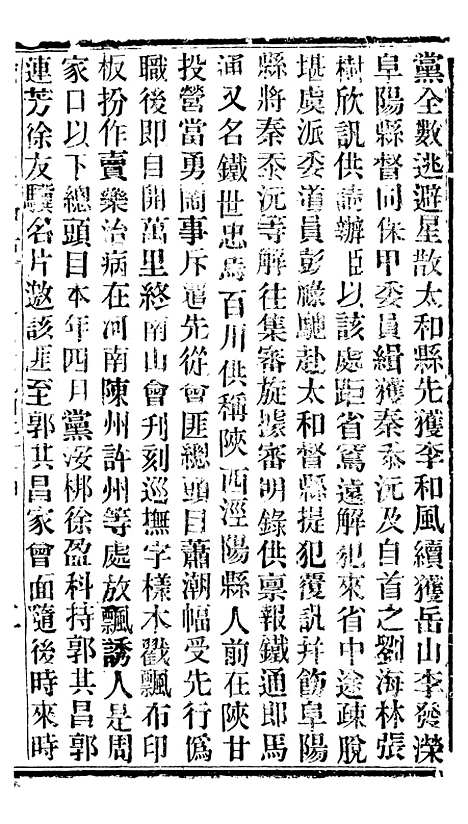 黨全數逃避星散太和縣先獲李和風續獲岳山李發濚
阜陽縣督同保甲委員緝獲秦泰沅及自首之劉海林張
樹欣訊供請辦臣以該處距省窵遠解犯來省中途疎脫
堪虞派委道員彭祿馳赴太和督縣提犯覆訊幷飭阜陽
縣將秦泰沅等解往集審旋據審明錄供稟報鐵通卽馬
通又名鐵世忠馬百川供稱陝西涇陽縣人前在陝甘
投營當勇鬧事斥革先從會匪總頭目蕭潮幅受先行僞
職後卽自開萬里終南山會刊刻巡撫字樣木戳飄布印
板扮作賣藥治病在河南陳州許州等處放飄誘人是周
家口以下總頭目本年四月黨洝梆徐盈科持郭共昌郭
連芳徐友驥名片邀該匪至郭共昌家會面隨後時來時